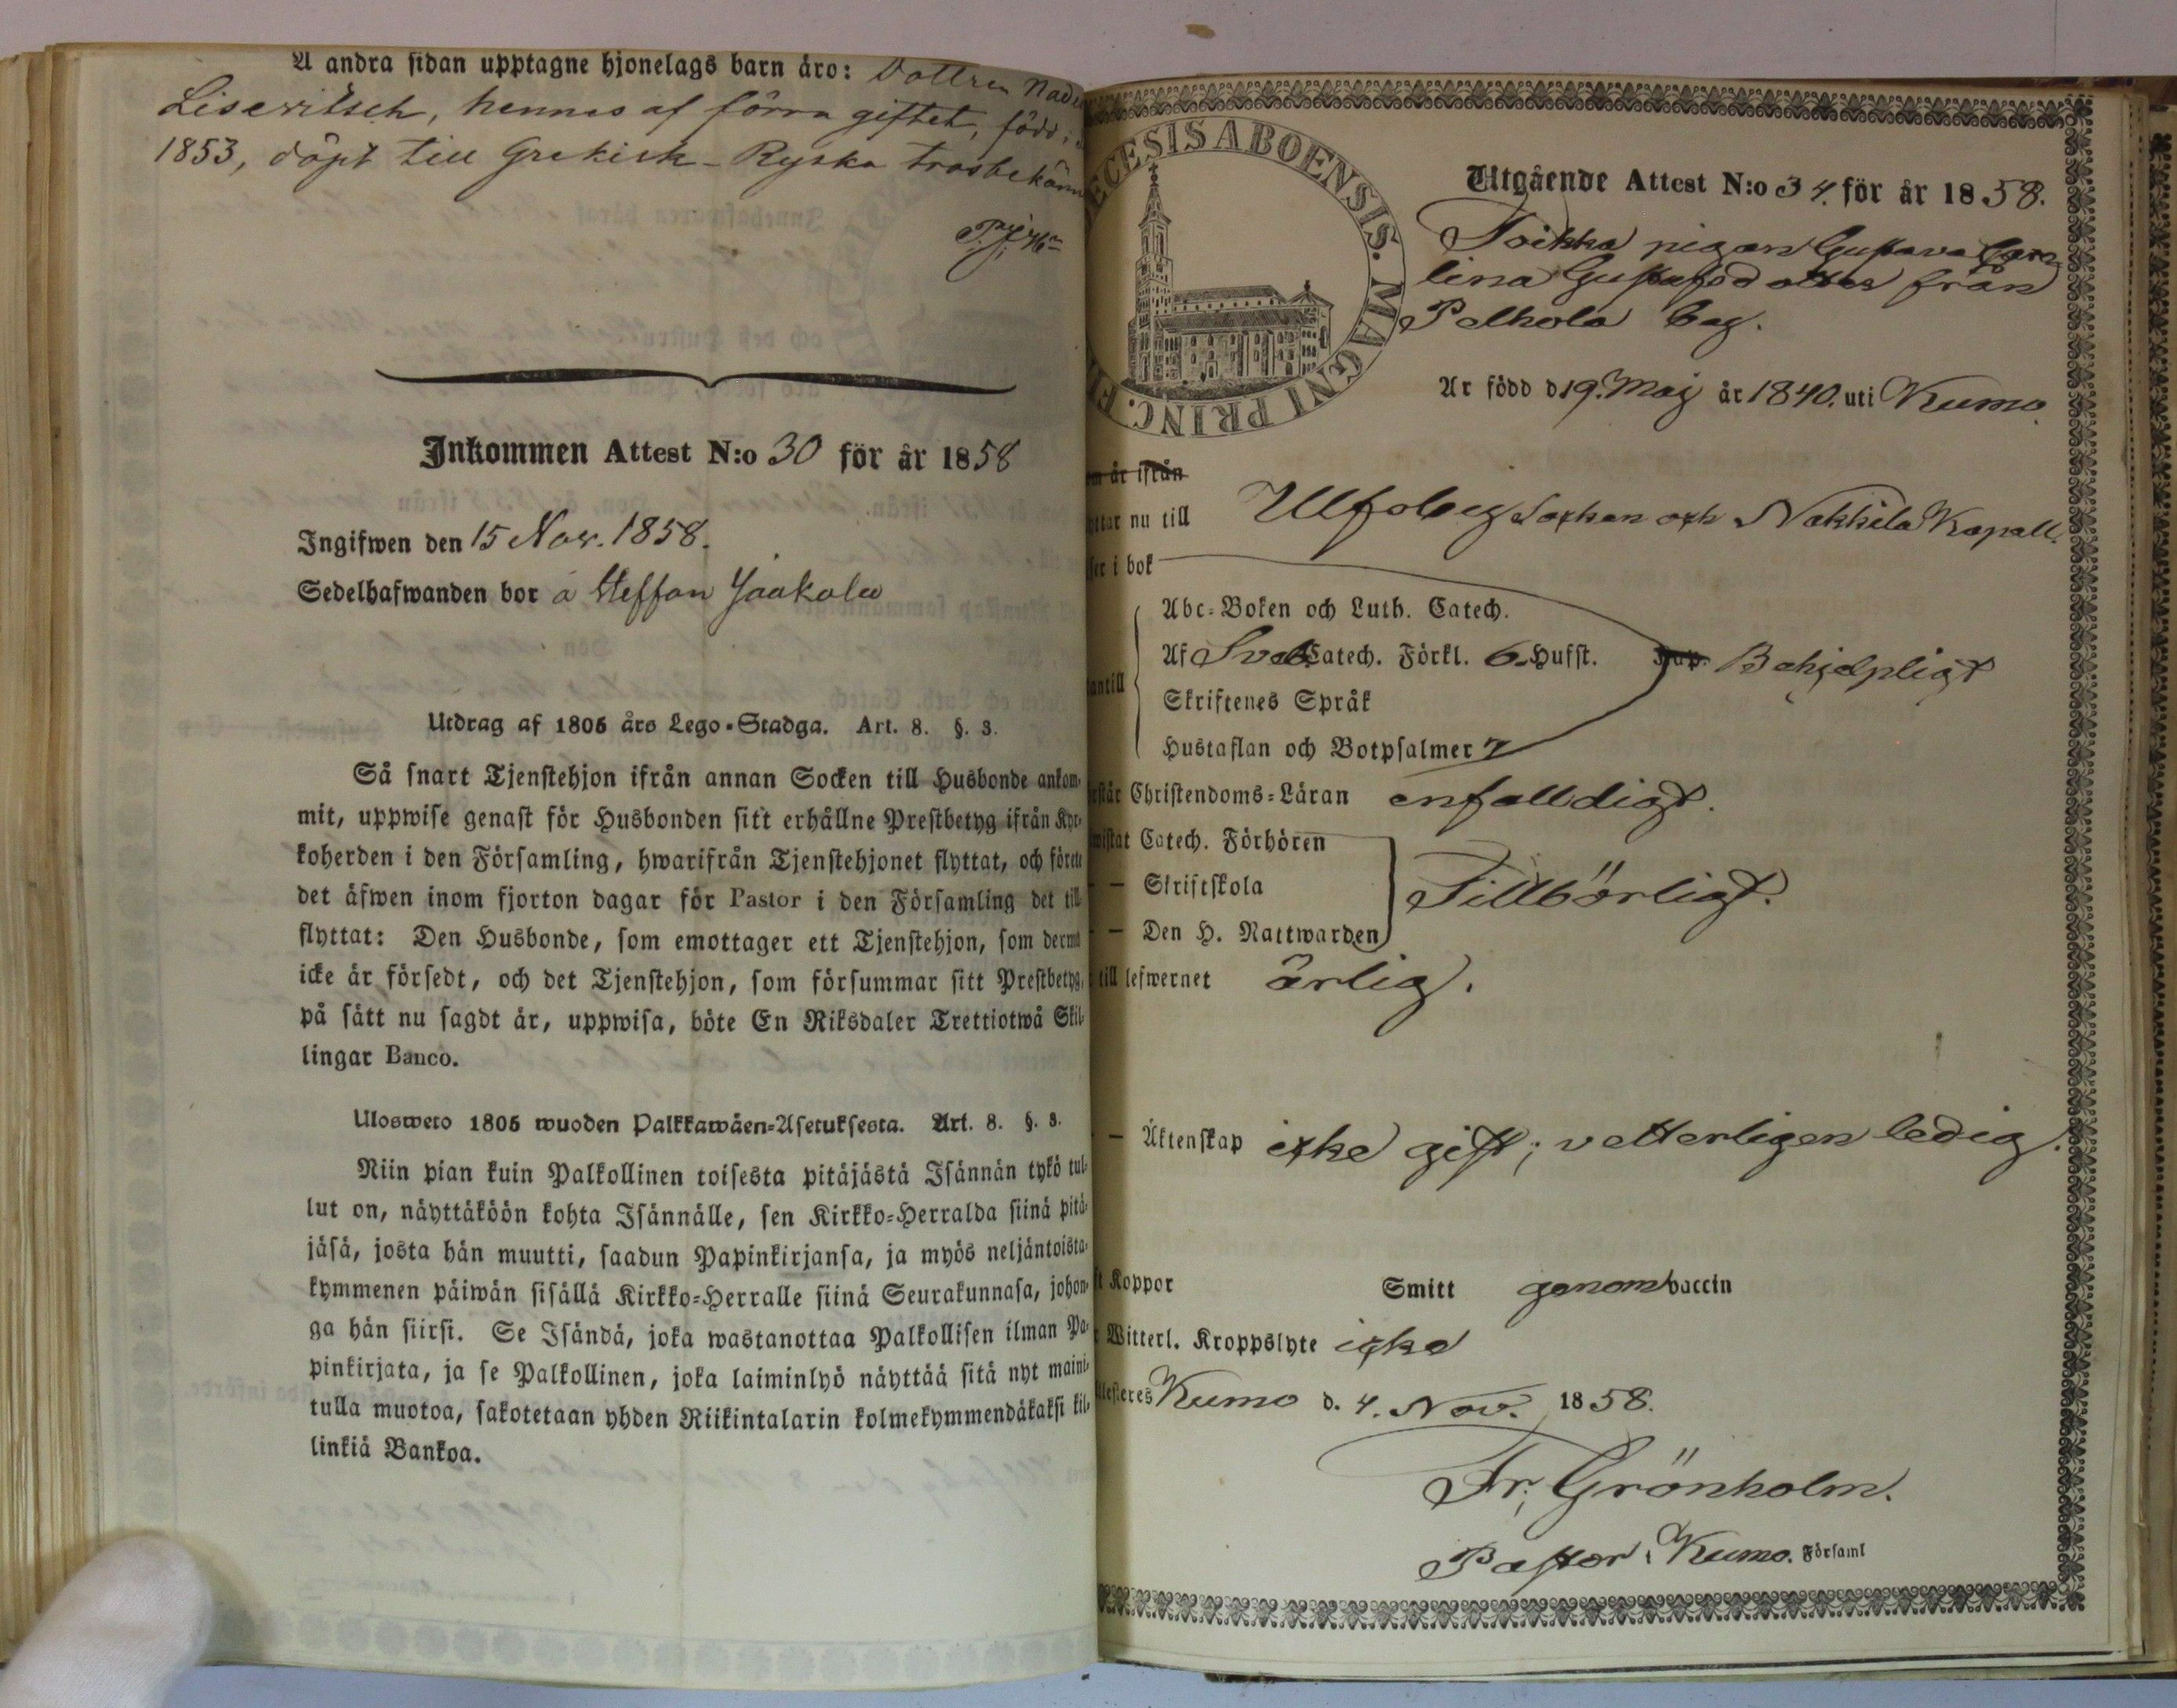 A andra sidan upptagne hjonelags barn äro: Dottren
Lisewitsch, hennes af förra giftet, född
1853, döpt till Grekisk-Ryska trosbekänn
Inkommen Attest N:o 30 för år 1858
Ingifwen den 15 Nov. 1858.
Sedelhafwanden bor å Steffan Jaakola
Utdrag af 1805 års Lego-Stadga. Art. 8. §. 3.
Så snart Tjenstehjon ifrån annan Socken till Husbonde ankom-
mit, uppwise genast för Husbonden sitt erhållne Prestbetyg ifrån Kyr-
koherden i den Församling, hwarifrån Tjenstehjonet flyttat, och förete
det äfwen inom fjorton dagar för Pastor i den Församling det till
flyttat: Den Husbonde, som emottager ett Tjenstehjon, som dermed
icke är försedt, och det Tjenstehjon, som försummar sitt Prestbetyg,
på sätt nu sagdt är, uppwisa, böte En Riksdaler Trettiotwå Skil-
lingar Banco.
Ulosweto 1805 wuoden Palkkawäen-Asetuksesta. Art. 8. §. 3.
Niin pian kuin Palkollinen toisesta pitäjästä Isännän tykö tul-
lut on, näyttäköön kohta Isännälle, sen Kirkko-Herralda siinä pitä-
jäsä, josta hän muutti, saadun Papinkirjansa, ja myös neljäntoista-
kymmenen päiwän sisällä Kirkko-Herralle siinä Seurakunnasa, johon-
ga hän siirsi. Se Isändä, joka wastanottaa Palkollisen ilman Pa-
pinkirjata, ja se Palkollinen, joka laiminlyö näyttää sitä nyt maini-
tulla muotoa, sakotetaan yhden Riikintalarin kolmekymmendäkaksi kil-
linkiä Bankoa.
ECESIS ABOENSIS. MAGNI PRINC. FI
Utgående Attest N:o 34. för år 1858.
Toikka pigan Gustava Caro-
lina Gustafsdotter från
Pelhola by.
Är född d 19. Maj år 1840. uti Kumo.
är ifrån
nu till Ulfsby Socken och Nakkila Kapell.
i bok
Abc-Boken och Luth. Catech.
Af Sveb. Catech. Förkl. 6. Hufst. Kap. Behjelpligt
antill
Skriftenes Språk
Hustaflan och Botpsalmer 7
Christendoms-Läran enfalldigt.
Catech. Förhören
— Skriftskola Tillbörligt.
— Den H. Nattwarden
till lefwernet ärlig.
— Äktenskap icke gift; vetterligen ledig.
Koppor Smitt genom vaccin
Witterl. Kroppslyte icke
Kumo d. 4. Nov. 1858.
Fr. Grönholm.
Pastor i Kumo. Församl